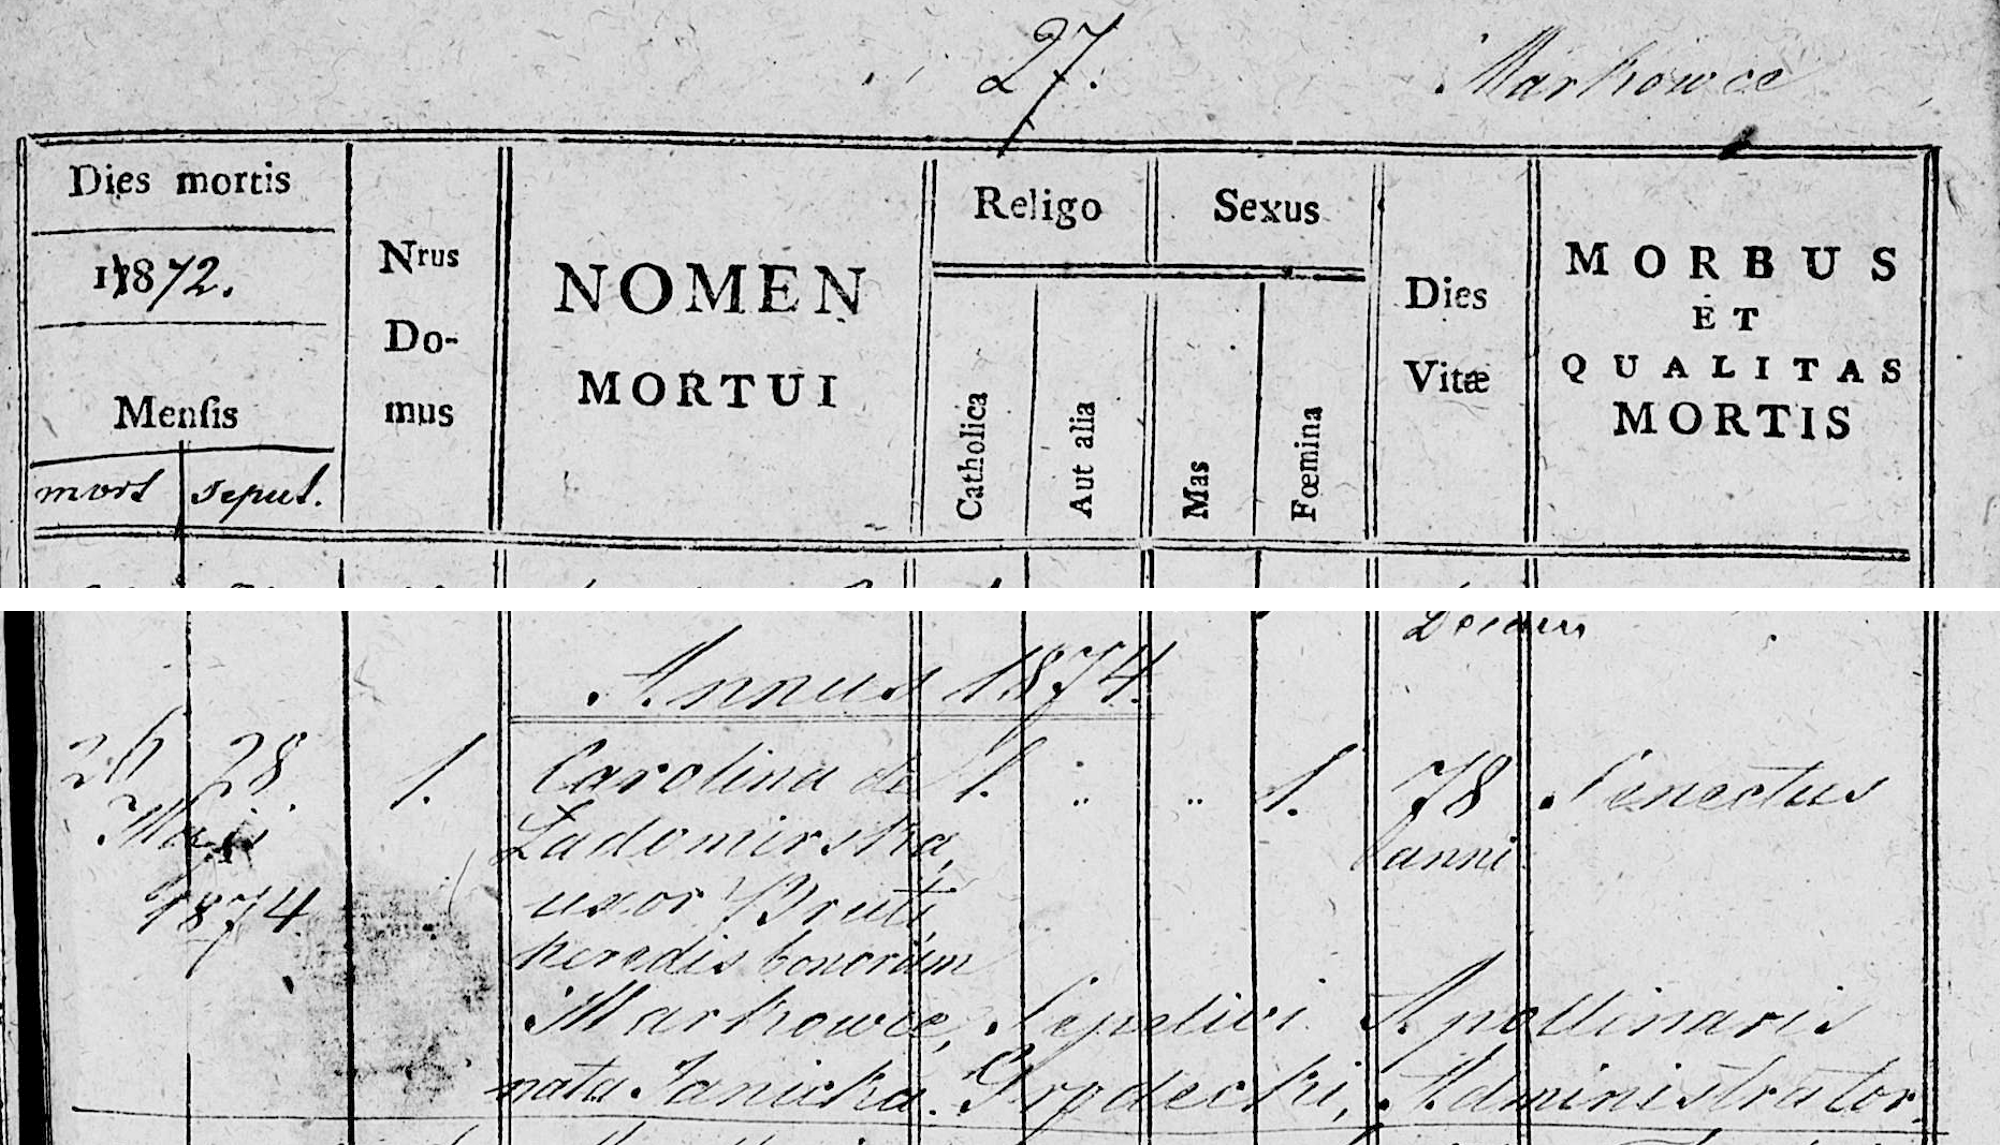 27.
Markowce
Dies mortis
1872.
Mensis
mort sepul.
Nrus
Do-
mus
NOMEN
MORTUI
Religo
Catholica
Aut alia
Sexus
Mas
Fœmina
Dies
Vitæ
MORBUS
ET
QUALITAS
MORTIS
Annus 1874.
26 28. 1. Carolina de 1. " " 1. 78 Senectus
Maji Ladomirska, anni
1874 uxor Bruti
heredis bonorum
Markowce, Sepelivi Apollinaris
nata Janicka. Grodecki, Administrator.